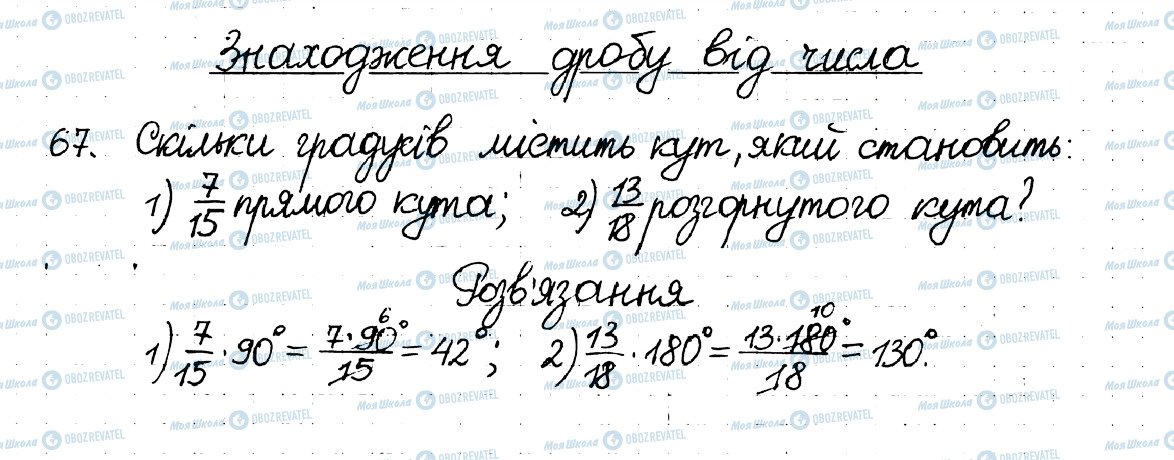 Знаходження дробу від числа
67. Скільки градусів містить кут, який становить:
1) 7/15 прямого кута; 2) 13/18 розгорнутого кута?
Розв'язання
1) 7/15 · 90° = 7·90°/15 = 42°; 2) 13/18 · 180° = 13·180°/18 = 130°.
6 10
Моя Школа OBOZREVATEL